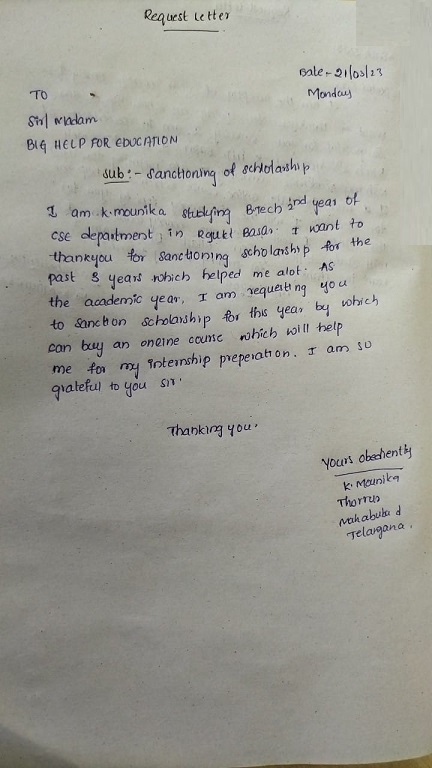 Request Letter
Date - 21/03/23
Monday
TO
Sir/ Madam
BIG HELP FOR EDUCATION
sub:- Sanctioning of scholarship
I am k.mounika studying B-Tech 2nd year of
CSE department, in Rgukt Basar. I want to
thankyou for sanctioning scholarship for the
past 3 years which helped me alot. As
the academic year, I am requesting you
to sanction scholarship for this year by which
can buy an online course which will help
me for my internship preperation. I am so
grateful to you sir.
Thanking you.
Yours obediently
K. Mounika
Thorrur
Mahabubad
Telangana.